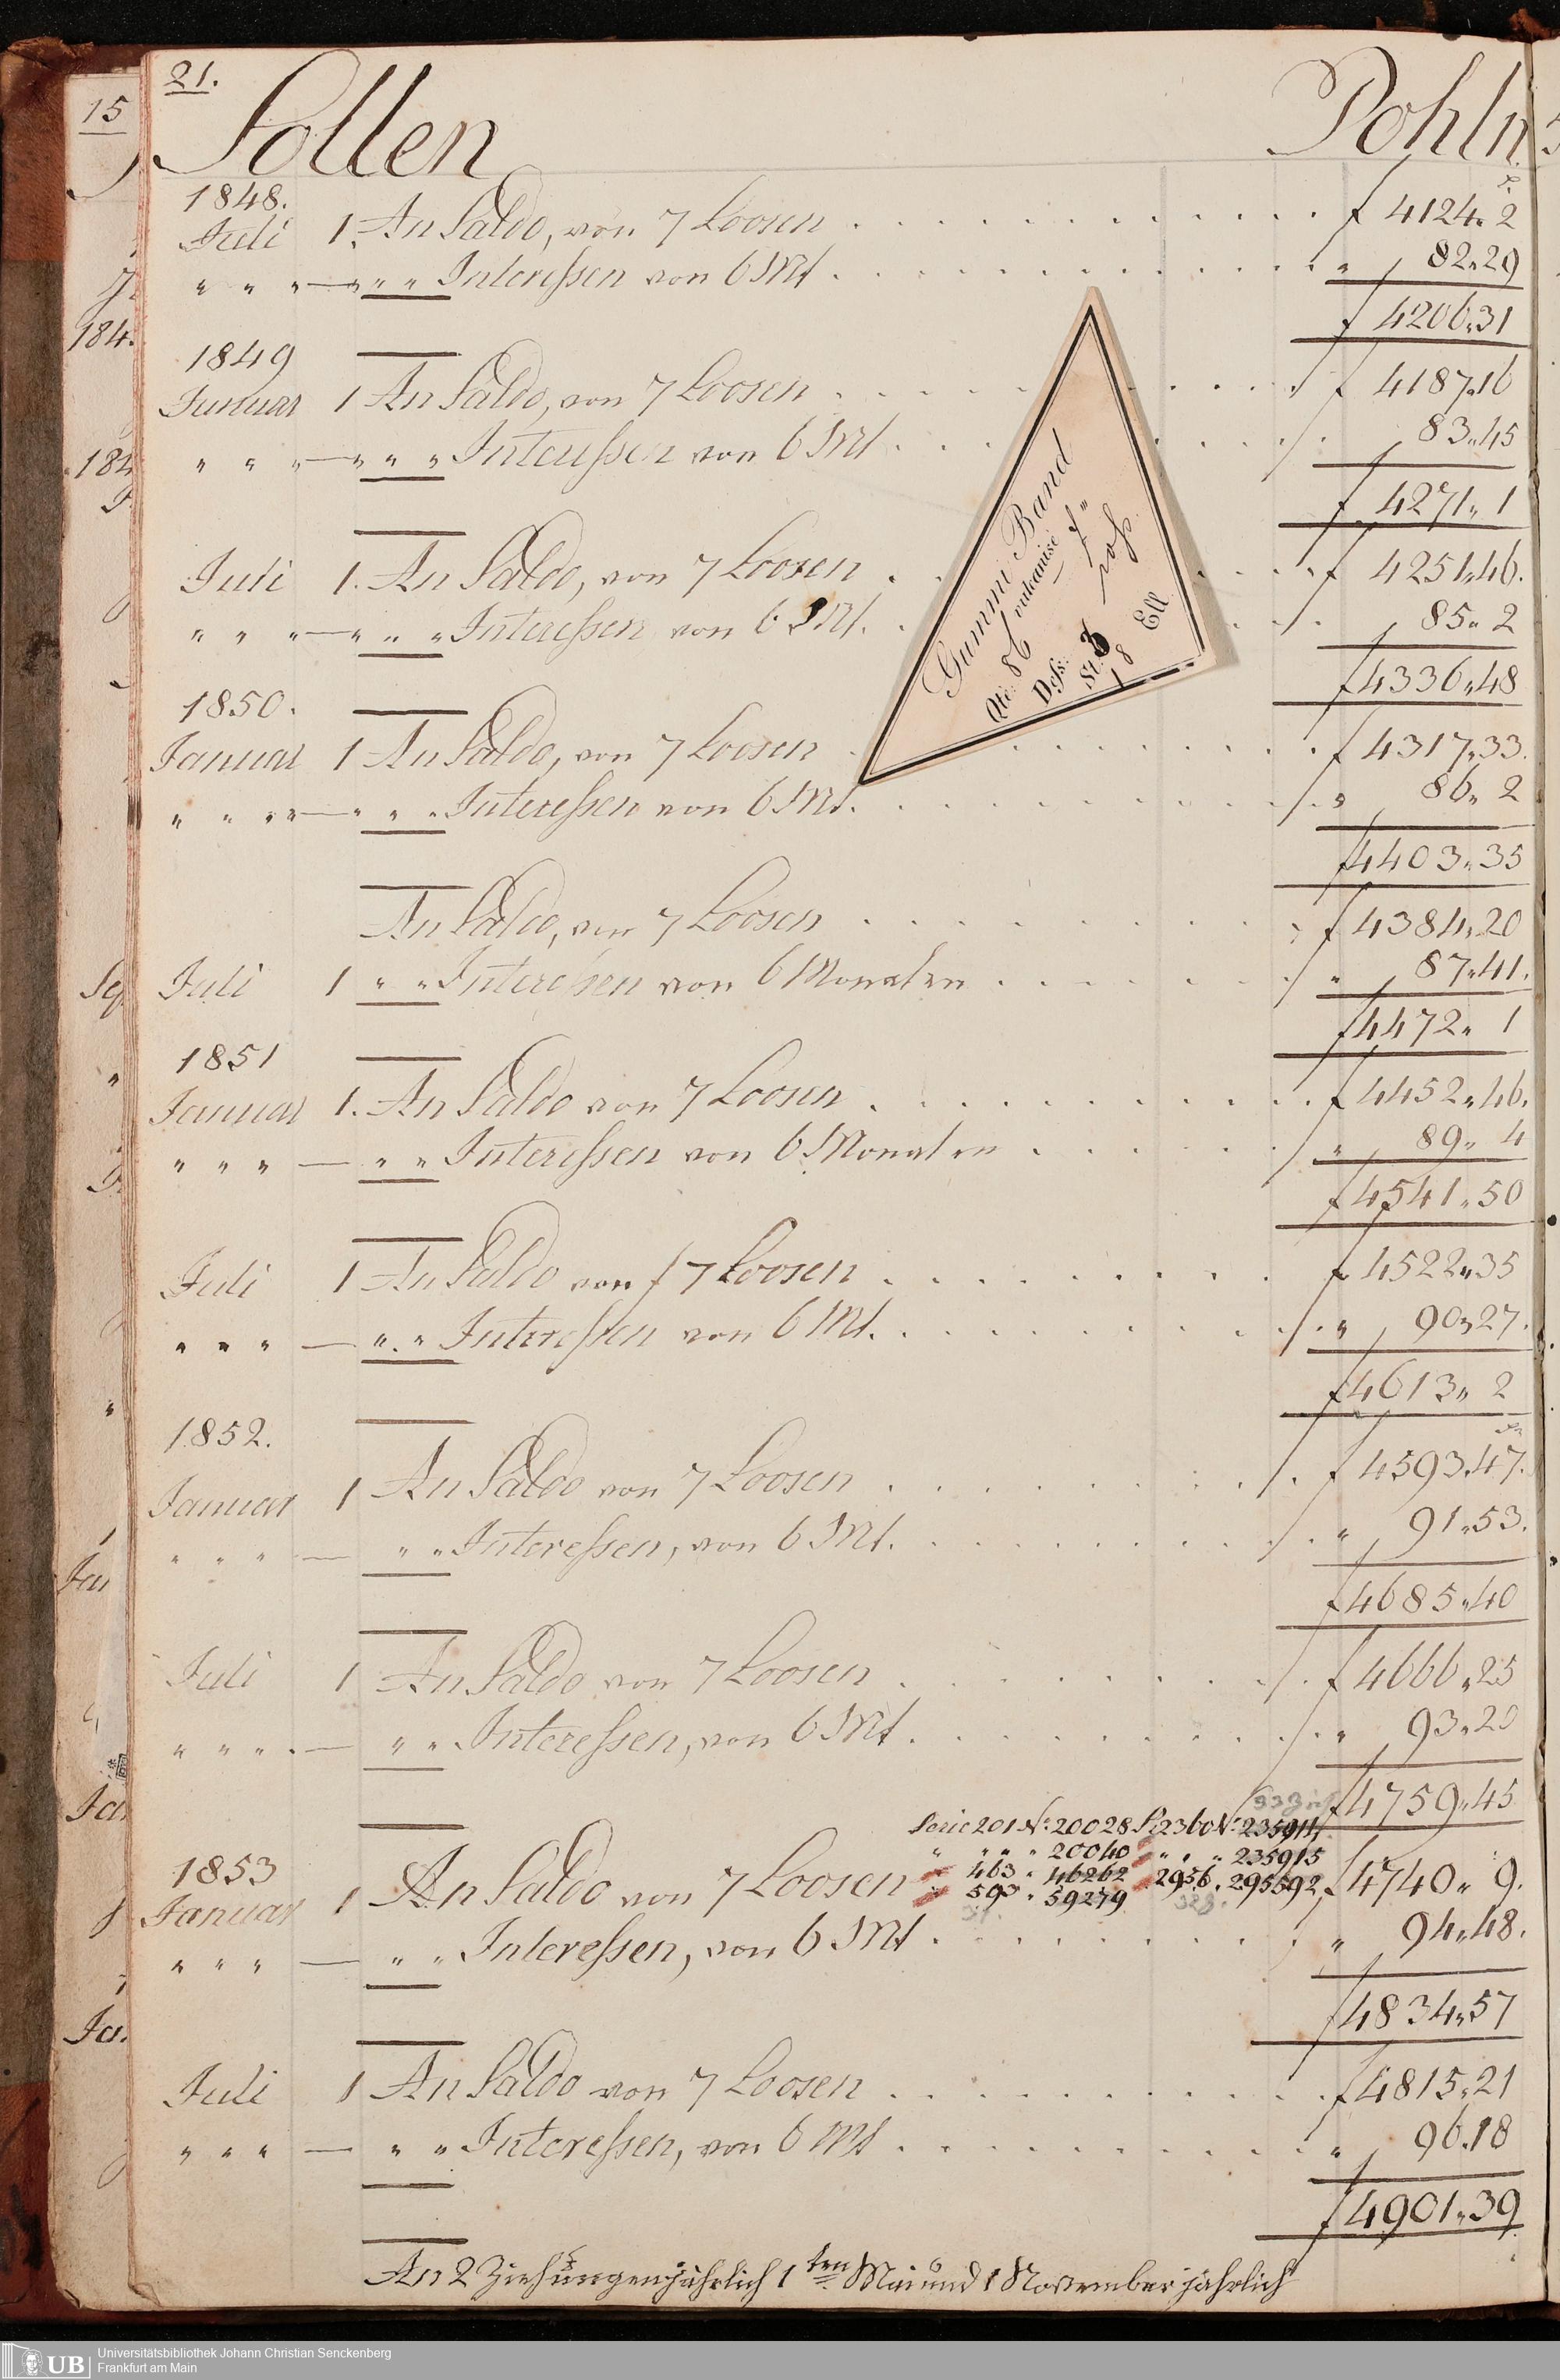 15
21.
Sollen
Pohln
1848.
Juli 1. An Saldo, von 7 Loosen f 4124 " 2
" " " — " " " Interessen von 6 Mt " 82 " 29
f 4206 " 31
1849
Januar 1 An Saldo, von 7 Loosen f 4187 " 16
" " " — " " " Interessen von 6 Mt 83 " 45
f 4271 " 1
Juli 1. An Saldo, von 7 Loosen f 4251 " 46.
" " " — " " " Interessen von 6 Mt. 85 " 2
f 4336 " 48
Gummi Band
vulcanisé
Qté: 86
Dess:
St. 3
Ell
18
1850.
Januar 1 An Saldo, von 7 Loosen f 4317 " 33.
" " " " — " " " Interessen von 6 Mt. " 86 " 2
f 4403 " 35
An Saldo, von 7 Loosen f 4384 " 20
Juli 1 " " Interessen von 6 Monaten " 87 " 41.
f 4472 " 1
1851
Januar 1. An Saldo von 7 Loosen f 4452 " 46.
" " " — " " Interessen von 6 Monaten " 89 " 4
f 4541 " 50
Juli 1 An Saldo von 7 Loosen f 4522 " 35
" " " — " " Interessen von 6 Mt. " 90 " 27.
f 4613 " 2
1852.
Januar 1 An Saldo von 7 Loosen f 4593 " 47.
" " " — " " Interessen, von 6 Mt. " 91 " 53.
f 4685 " 40
Juli 1 An Saldo von 7 Loosen f 4666 " 25
" " " — " " Interessen, von 6 Mt. " 93 " 20
f 4759 " 45
Serie 201 N: 20028 S. 2360 N: 235911
" " " " 20040 " " " 235915
463 " 46262 2956 " 295592
593 " 59279
1853
Januar 1 An Saldo von 7 Loosen f 4740 " 9.
" " " — " " Interessen, von 6 Mt " 94 " 48.
f 4834 " 57
Juli 1 An Saldo von 7 Loosen f 4815 " 21
" " " — " " Interessen, von 6 Mt " 96.18
f 4901 " 39
An 2 Ziehungen jährlich 1ten Mai und 1 November jährlich
UB
Universitätsbibliothek Johann Christian Senckenberg
Frankfurt am Main